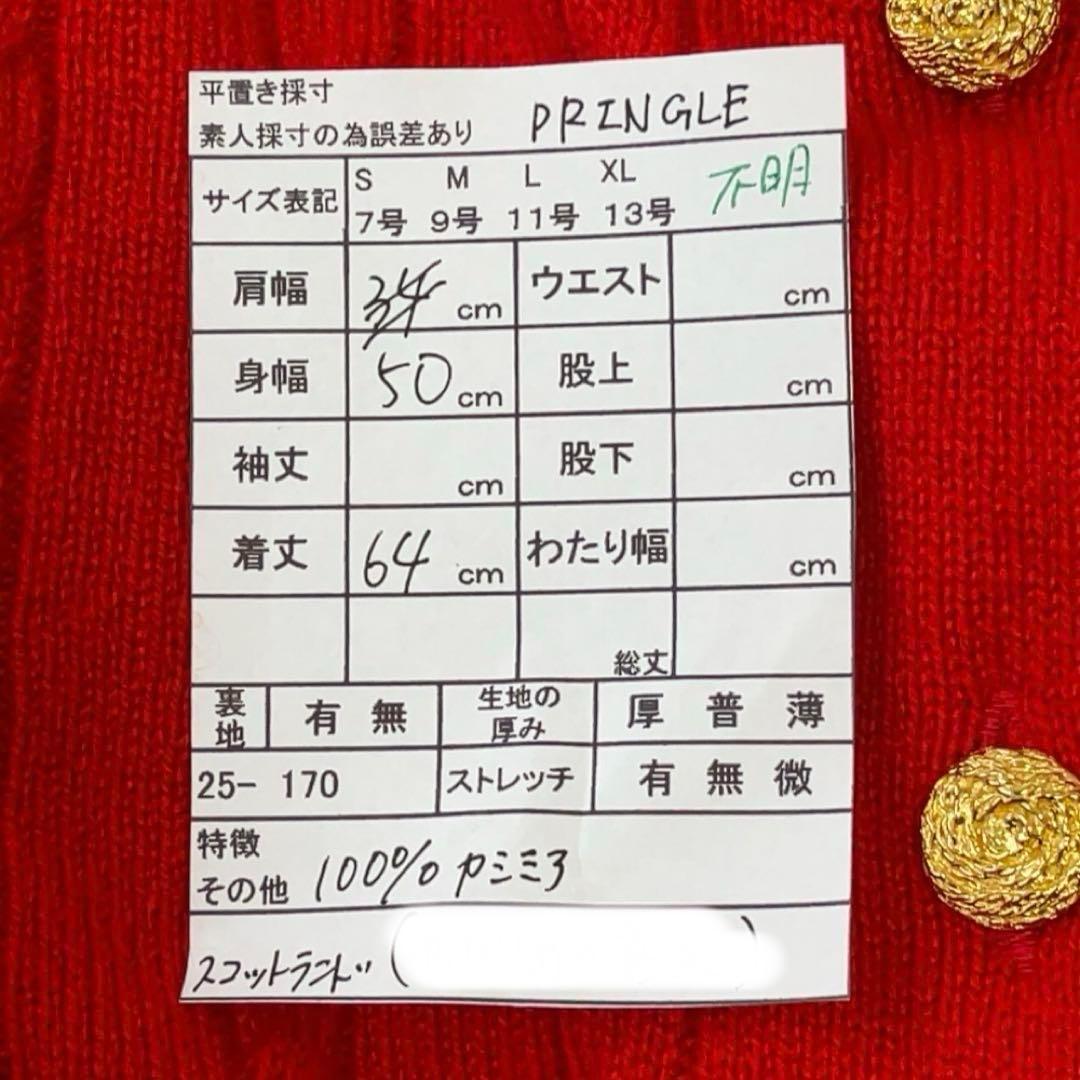 平置き採寸
素人採寸の為誤差あり PRINGLE
サイズ表記 S M L XL 不明
7号 9号 11号 13号
肩幅 cm ウエスト cm
身幅 50 cm 股上 cm
袖丈 cm 股下 cm
着丈 64 cm わたり幅 cm
総丈
裏地 有 無 生地の厚み 厚 普 薄
25- 170 ストレッチ 有 無 微
特徴
その他 100% カシミア
スコットランド (